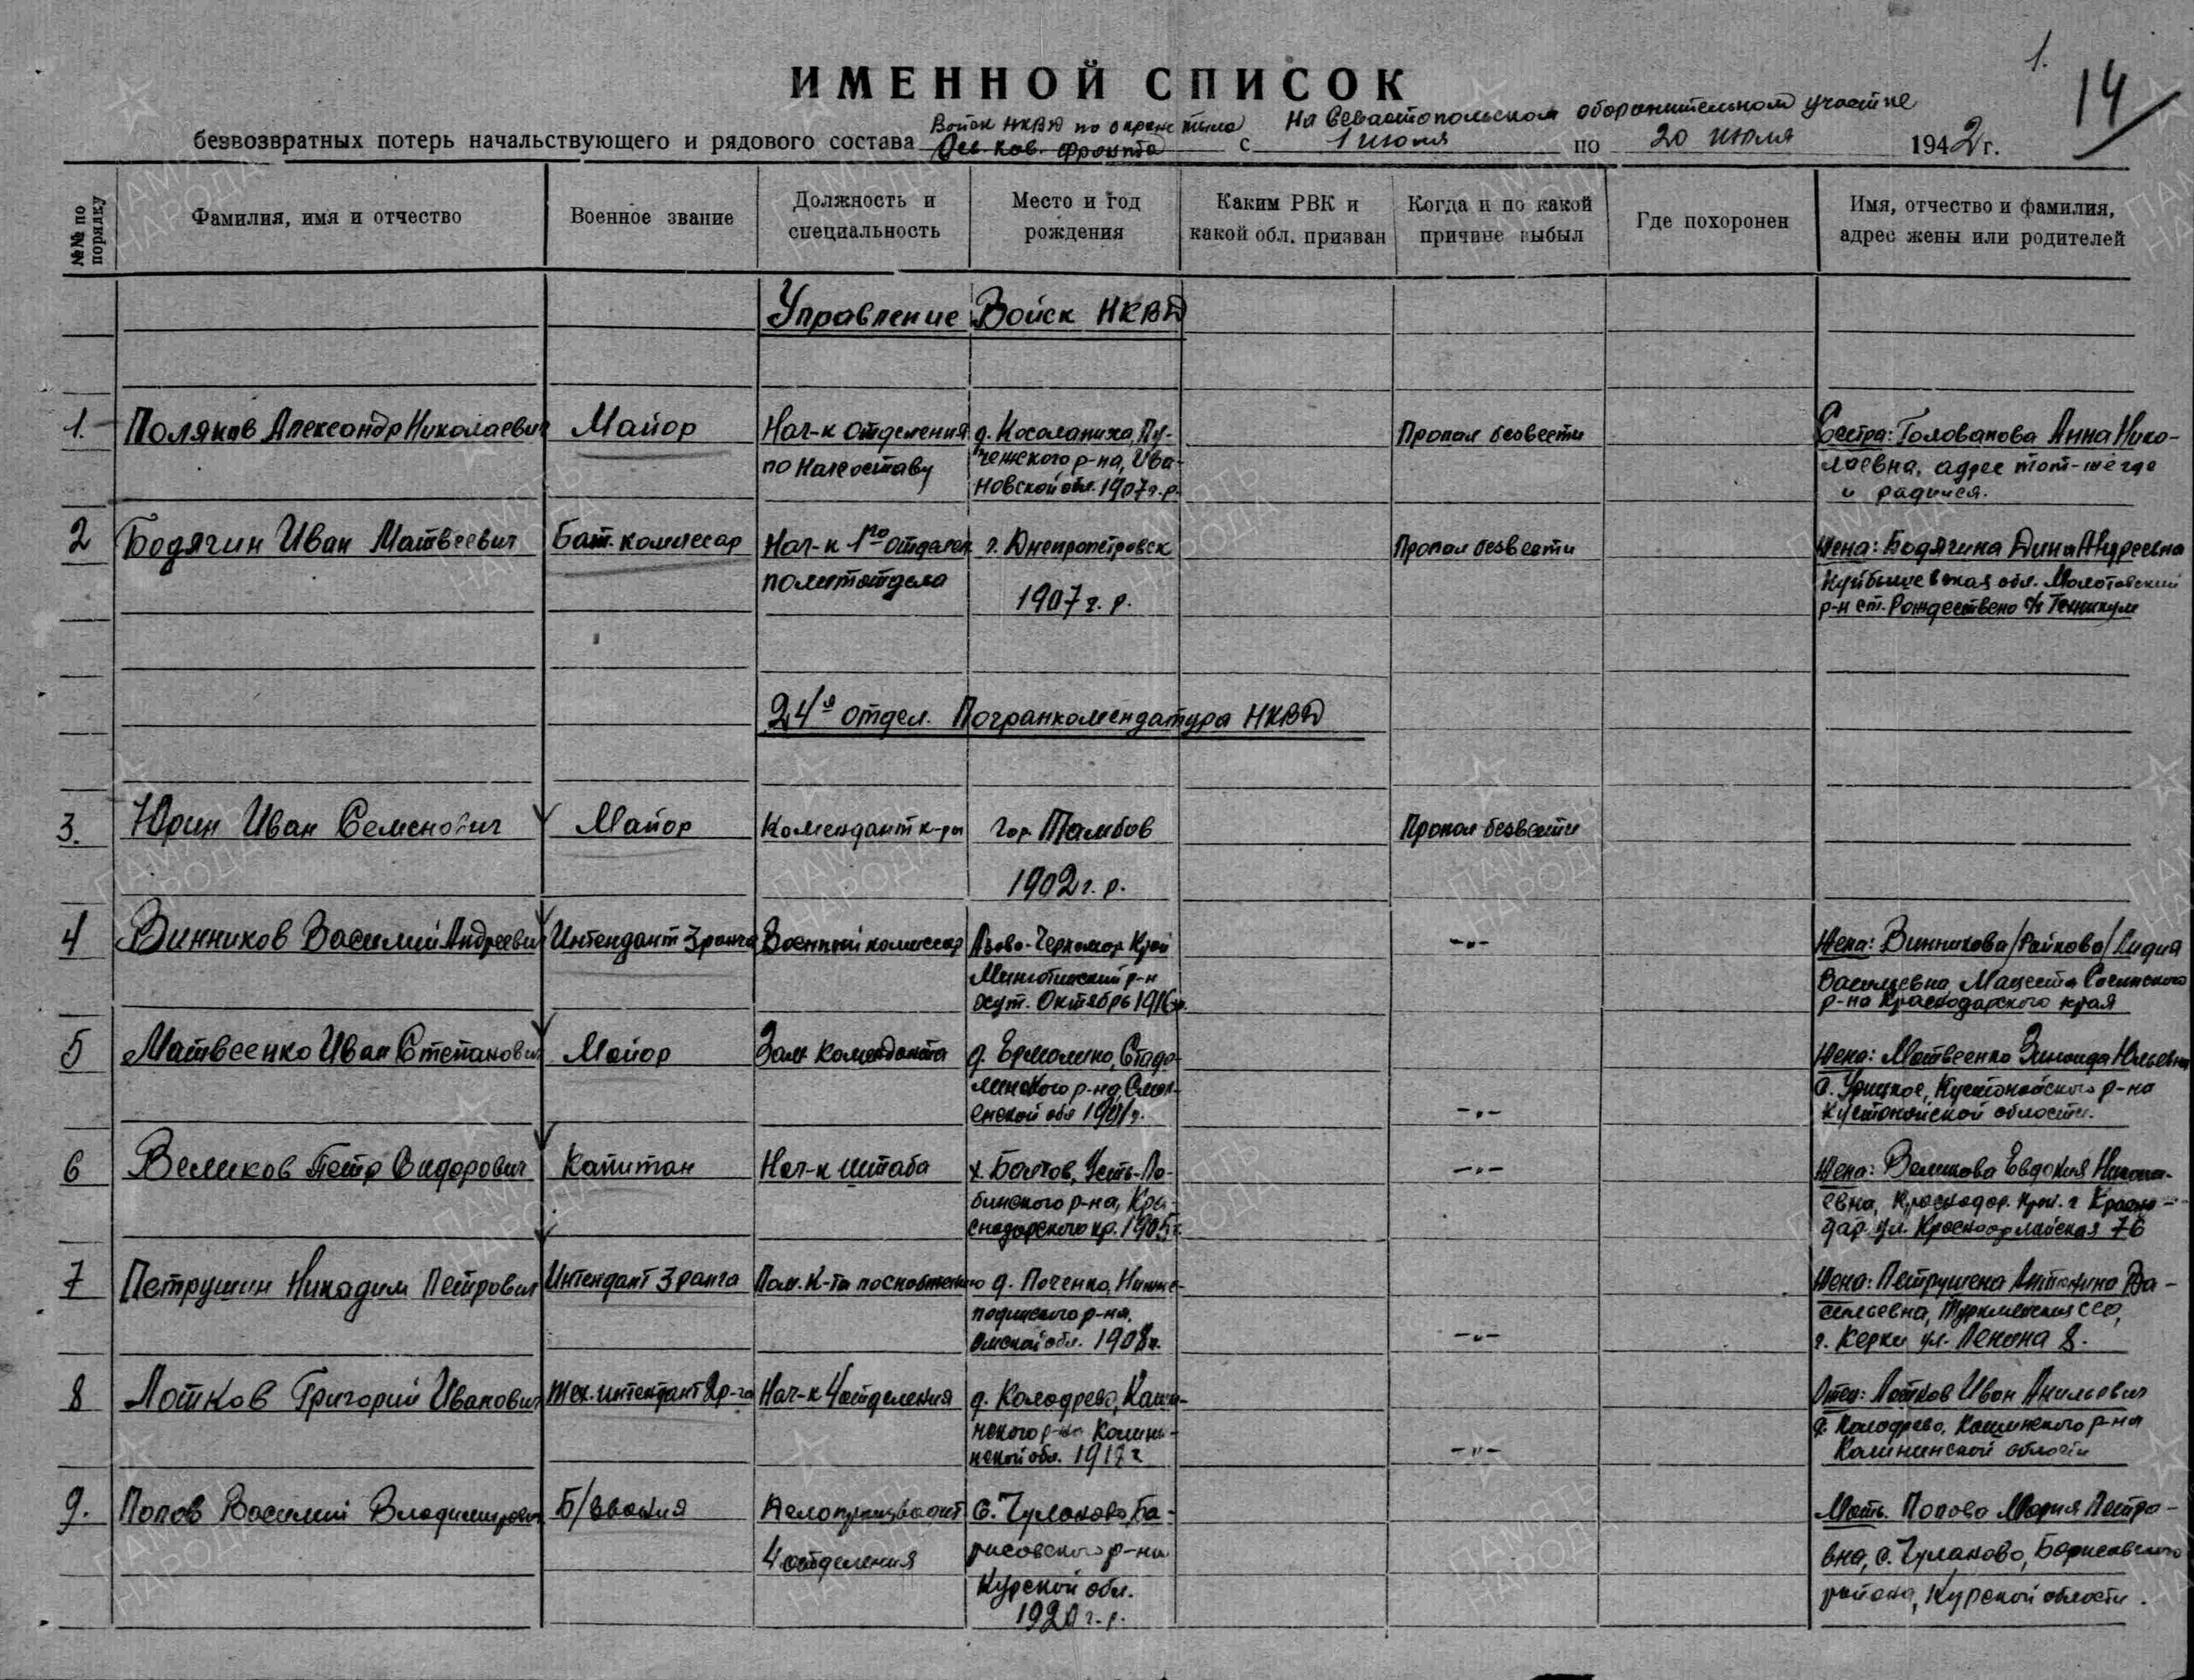 1.
14
ИМЕННОЙ СПИСОК
На Севастопольском оборонительном участке
Войск НКВД по охране тыла
безвозвратных потерь начальствующего и рядового состава Сев. Кав. фронта с 1 июня по 20 июля 1942 г.
№№ по порядку
Фамилия, имя и отчество
Военное звание
Должность и специальность
Место и год рождения
Каким РВК и какой обл. призван
Когда и по какой причине выбыл
Где похоронен
Имя, отчество и фамилия, адрес жены или родителей
Управление Войск НКВД
1. Поляков Александр Николаевич Майор Нач-к отделения д. Косолапиха, Пу- Пропал безвести Сестра: Голованова Анна Нико-
по начсоставу чежского р-на, Ива- лаевна, адрес тот-же где
новской обл. 1907 г.р. и родился.
2 Бодягин Иван Матвеевич Бат. комиссар Нач-к 1го отделен г. Днепропетровск Пропал безвести Жена: Бодягина Дина Андреевна
политотдела Куйбышевская обл. Молотовский
1907 г. р. р-н ст. Рождествено Техникум
24я отдел. Погранкомендатура НКВД
3. Юрин Иван Семенович Майор Комендант к-ры гор. Тамбов Пропал безвести
1902 г. р.
4 Винников Василий Андреевич Интендант 3 ранга Военный комиссар Азово-Черномор Край -"- Жена: Винникова /Райкова/ Лидия
р-н Васильевна, Мацеста Сочинского
хут. Октябрь 1916 г. р-на Краснодарского края
5 Матвеенко Иван Степанович Майор Зам. Коменданта д. Ермолино, Стодо- Жена: Матвеенко Зинаида Юльевна
лищского р-на, Смол- с. Урицкое, Кустанайского р-на
енской обл 1901 г. -"- Кустанайской области.
6 Великов Петр Сидорович Капитан Нач-к штаба х. Болгов, Усть-Ла- -"- Жена: Великова Евдокия Никола-
бинского р-на, Кра- евна, Краснодар. край. г Красно-
снодарского кр. 1905 г. дар. ул. Красноармейская 76
7 Петрушин Никодим Петрович Интендант 3 ранга Пом. К-та по снабжению д. Поченка, Нижне- Жена: Петрушена Антонина Ва-
р-на, сильевна, Туркменская ССР,
Омской обл. 1908 г. -"- г. Керки ул. Ленина 8.
8 Лотков Григорий Иванович Тех. интендант 2 р-га Нач-к 4 отделения д. Колодрево, Каши- Отец: Лотков Иван
нского р-на Калини- д. Колодрево, Кашинского р-на
нской обл. 1917 г -"- Калининской области
9. Попов Василий Владимирович Б/звания Делопроизводит с. Чуланово, Бо- Мать. Попова Мария Петро-
4 отделения рисовского р-на вна, с. Чуланово, Борисовского
Курской обл. района, Курской области.
1920 г. р.